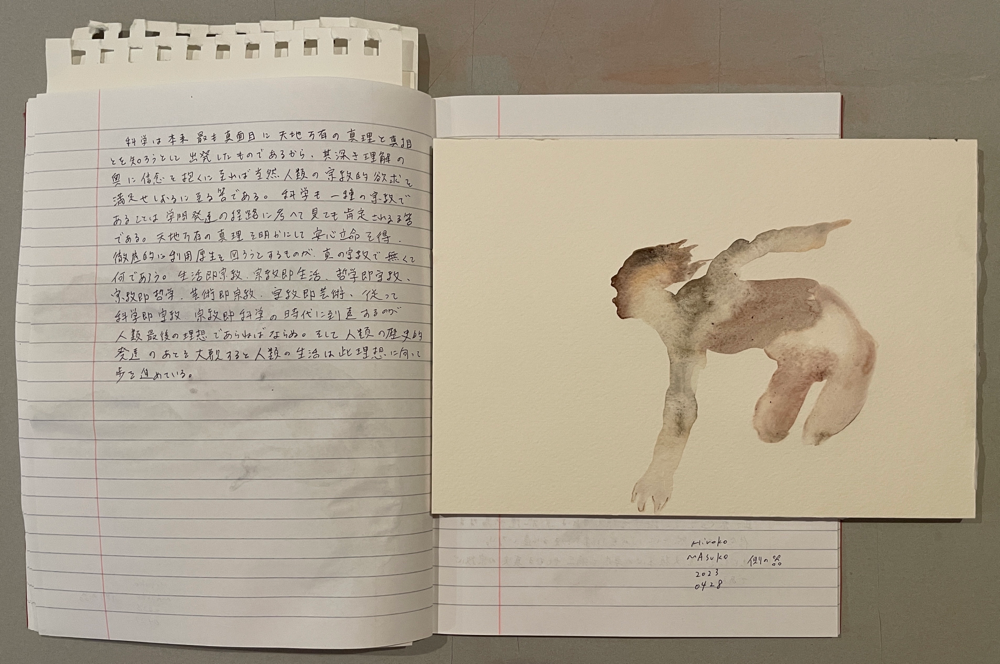 科学は本来最も真面目に天地万有の真理と真相
とを知ろうとして出発したものであるから、其深き理解の
奥に信念を抱くに至れば当然人類の宗教的欲求を
満足せしむるに至る筈である。科学も一種の宗教で
あるとは学問発達の経路に考へて見ても肯定される筈
である。天地万有の真理を明かにして安心立命を得、
徹底的に利用厚生を図ろうとするものが、真の宗教で無くて
何であろう。生活即宗教、宗教即生活、哲学即宗教、
宗教即哲学、芸術即宗教、宗教即芸術、従って
科学即宗教、宗教即科学の時代に到達するのが
人類最後の理想であらねばならぬ。そして人類の歴史的
発達のあとを大観すると人類の生活は此理想に向って
歩を進めている。
Hiroko
MAsuko
2023
04.28
の器